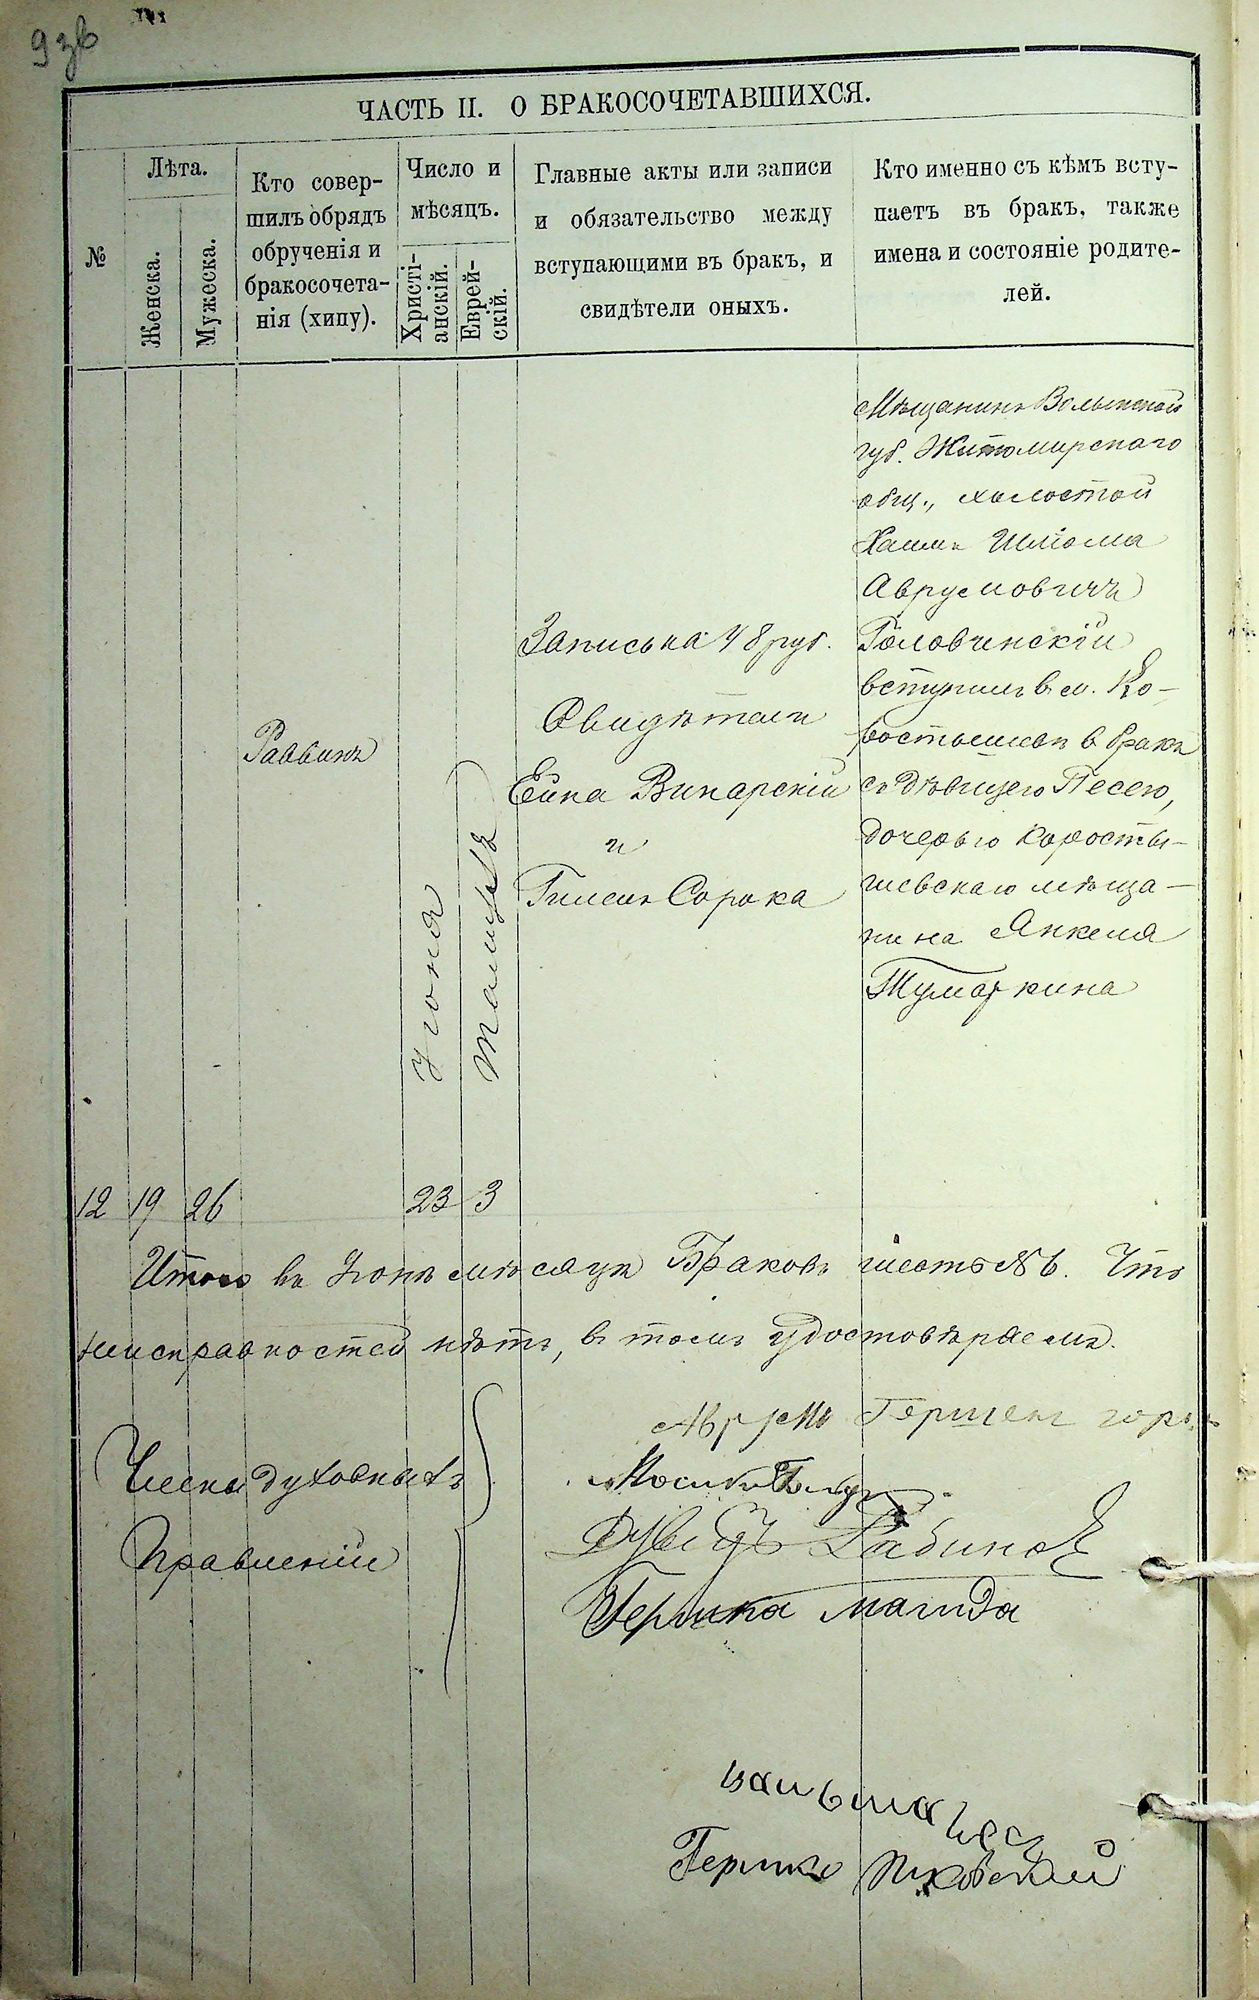 93б
ЧАСТЬ II. О БРАКОСОЧЕТАВШИХСЯ.
№
Лѣта.
Женска.
Мужеска.
Кто совер-
шилъ обрядъ
обрученія и
бракосочета-
нія (хипу).
Число и
мѣсяцъ.
Христі-
анскій.
Еврей-
скій.
Главные акты или записи
и обязательство между
вступающими въ бракъ, и
свидѣтели оныхъ.
Кто именно съ кѣмъ всту-
паетъ въ бракъ, также
имена и состояніе родите-
лей.
12
19
26
Раввинъ
Іюня
23
Тамуза
3
Запись на 48 руб.
Свидѣтели
Ейна Винарскій
и
Гилель Сорока
Мѣщанинъ Волынской
губ. Житомирскаго
общ., холостой
Хаимъ Шліома
Аврумовичъ
Головчинскій
вступилъ в м. Ко-
ростышевѣ в бракъ
съ дѣвицею Песею,
дочерью Коросты-
шевскаго мѣща-
нина Янкеля
Тумаркина
Итого въ Іюнѣ мѣсяцѣ Браковъ шесть № 6. Что
неисправностей нѣтъ, в томъ удостовѣряемъ.
Члены духовныхъ
Правленій
Аврумъ Гершенг
Мошко
Рабинов
Гершка Магида
Гершко